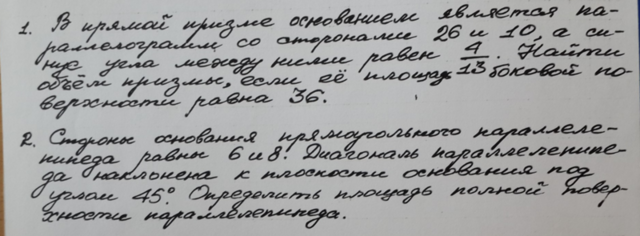 1. В прямой призме основанием является па-
раллелограмм со сторонами 26 и 10, а си-
нус угла между ними равен 4/13. Найти
объём призмы, если её площадь боковой по-
верхности равна 36.
2. Стороны основания прямоугольного параллеле-
пипеда равны 6 и 8. Диагональ параллелепипе-
да наклонена к плоскости основания под
углом 45°. Определить площадь полной повер-
хности параллелепипеда.